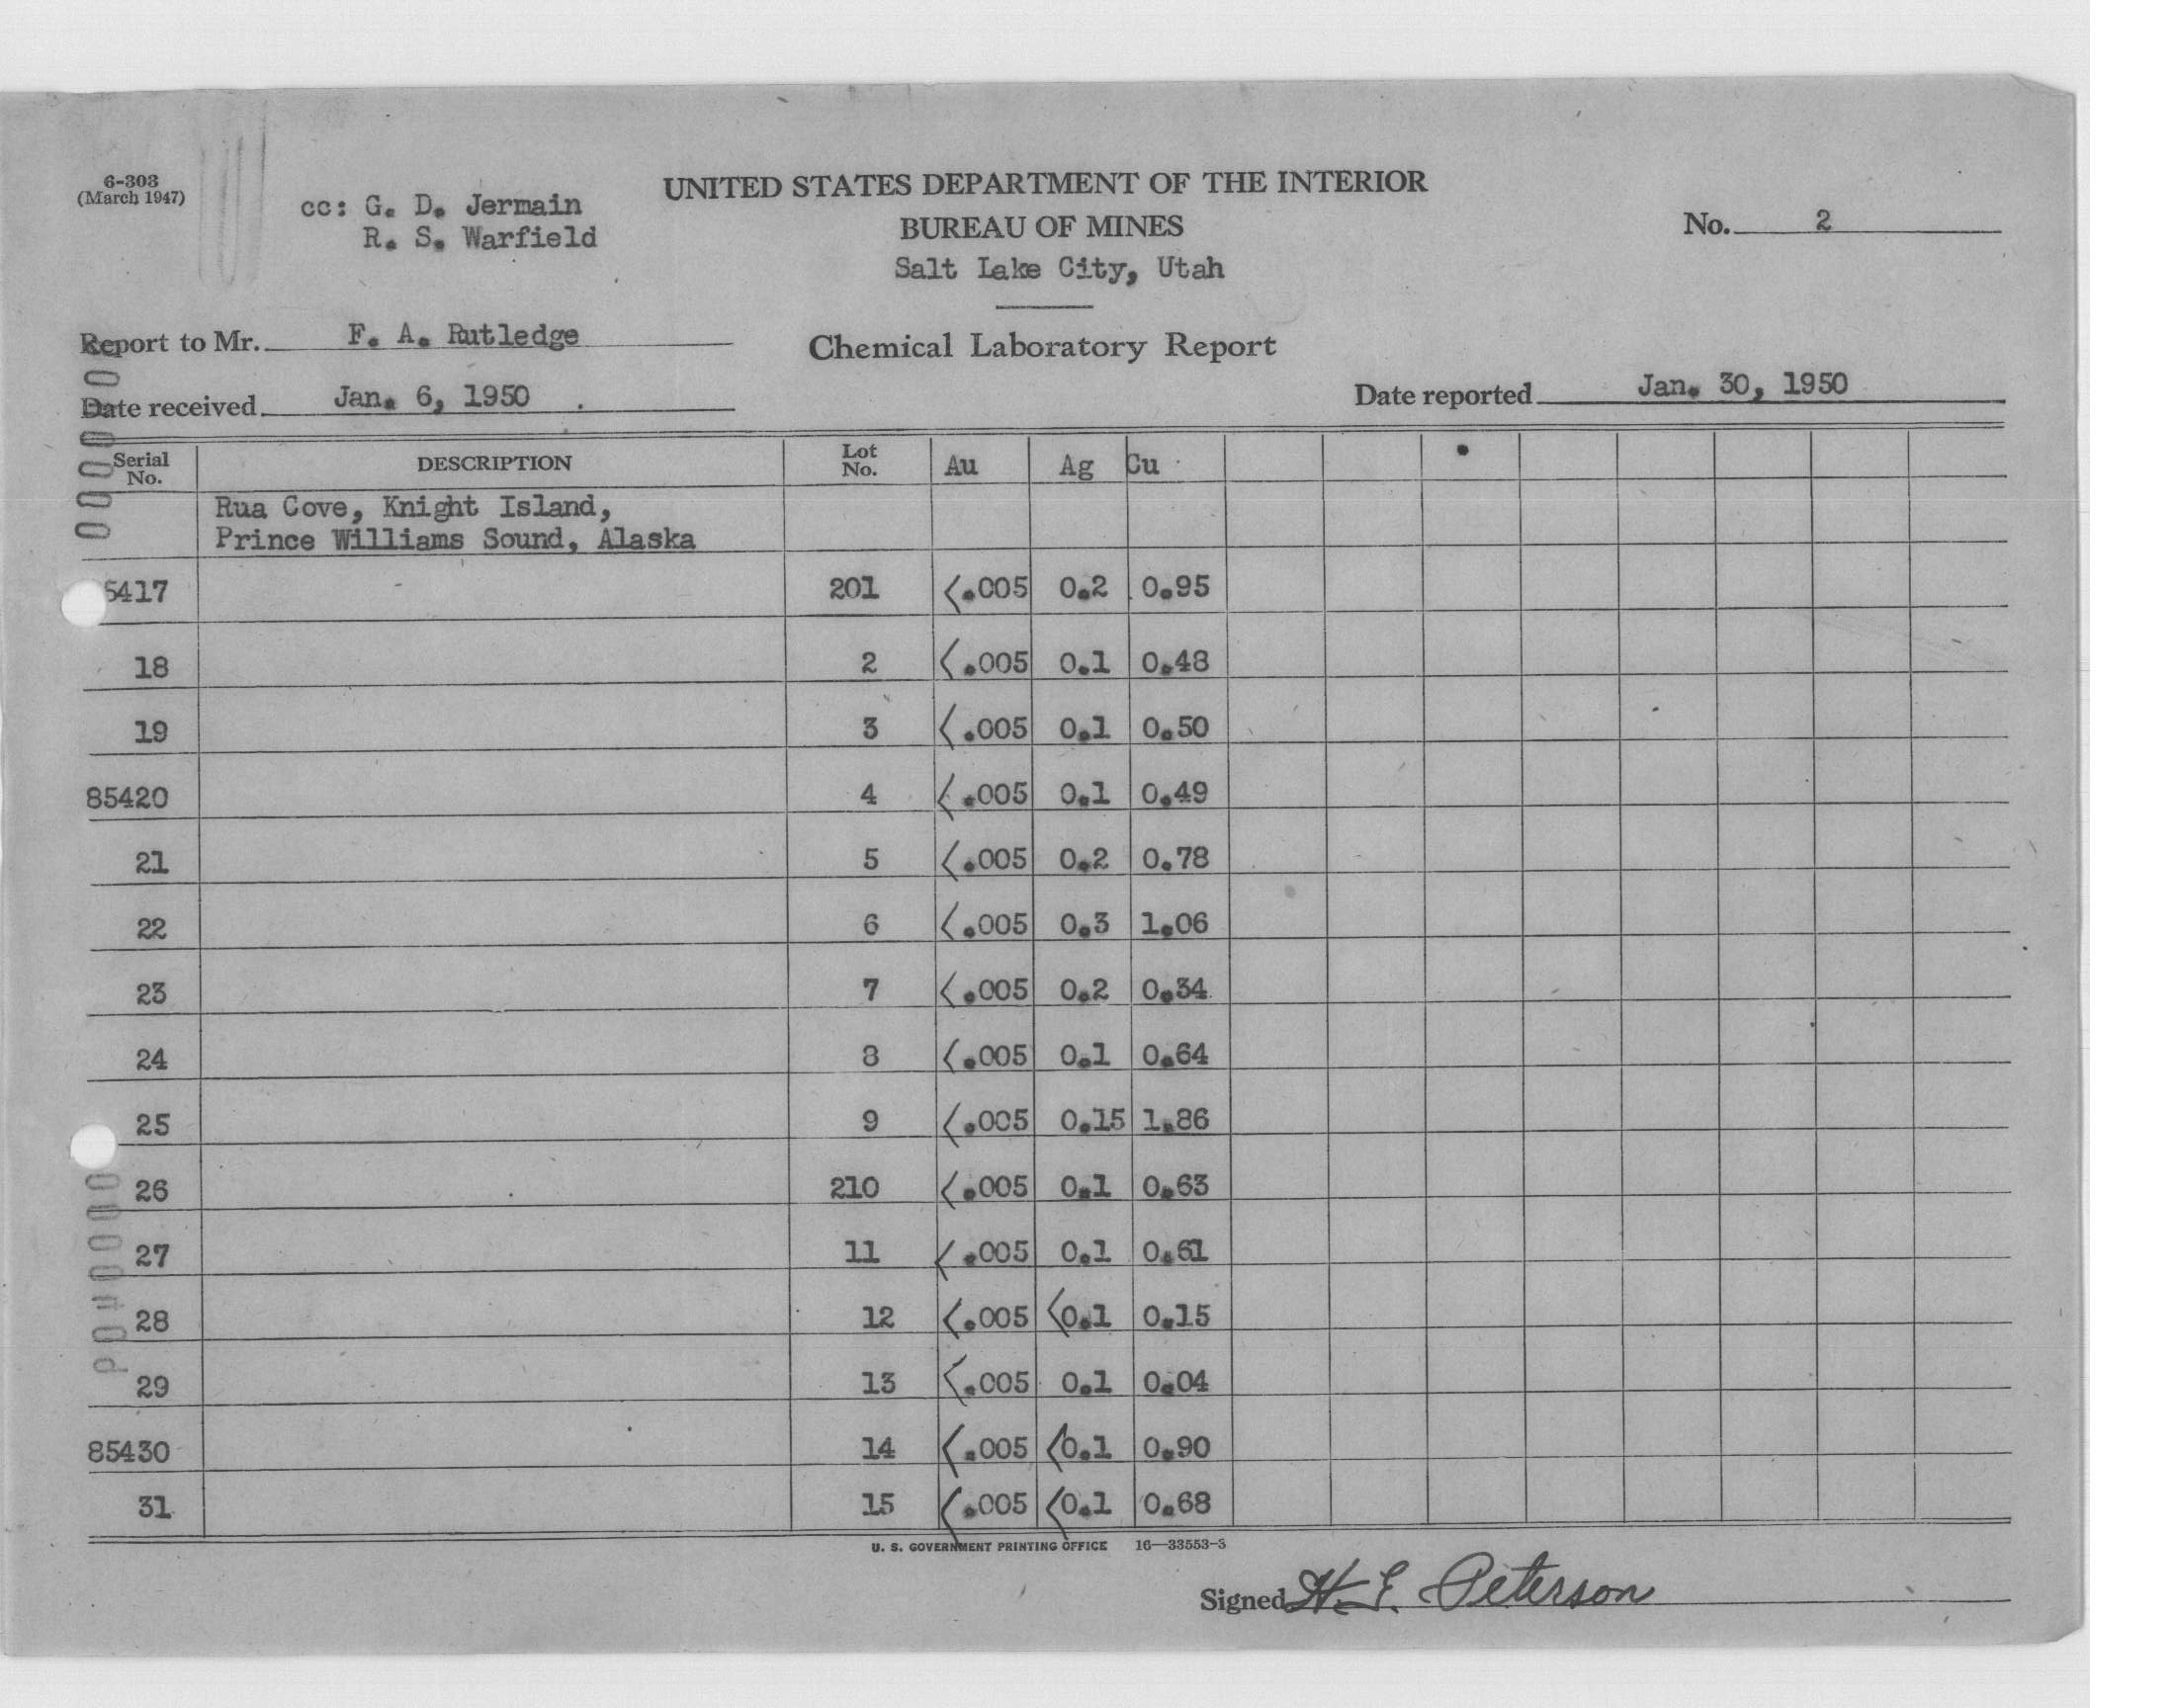 6-303
(March 1947)
cc: G. D. Jermain
R. S. Warfield
UNITED STATES DEPARTMENT OF THE INTERIOR
BUREAU OF MINES
Salt Lake City, Utah
No. 2
Report to Mr. F. A. Rutledge
Chemical Laboratory Report
Date received Jan. 6, 1950 .
Date reported Jan. 30, 1950
Serial No. DESCRIPTION Lot No. Au Ag Cu
Rua Cove, Knight Island,
Prince Williams Sound, Alaska
5417 201 <.005 0.2 0.95
18 2 <.005 0.1 0.48
19 3 <.005 0.1 0.50
85420 4 <.005 0.1 0.49
21 5 <.005 0.2 0.78
22 6 <.005 0.3 1.06
23 7 <.005 0.2 0.34
24 8 <.005 0.1 0.64
25 9 <.005 0.15 1.86
26 210 <.005 0.1 0.63
27 11 <.005 0.1 0.61
28 12 <.005 <0.1 0.15
29 13 <.005 0.1 0.04
85430 14 <.005 <0.1 0.90
31 15 <.005 <0.1 0.68
U. S. GOVERNMENT PRINTING OFFICE 16—33553-3
Signed H. E. Peterson